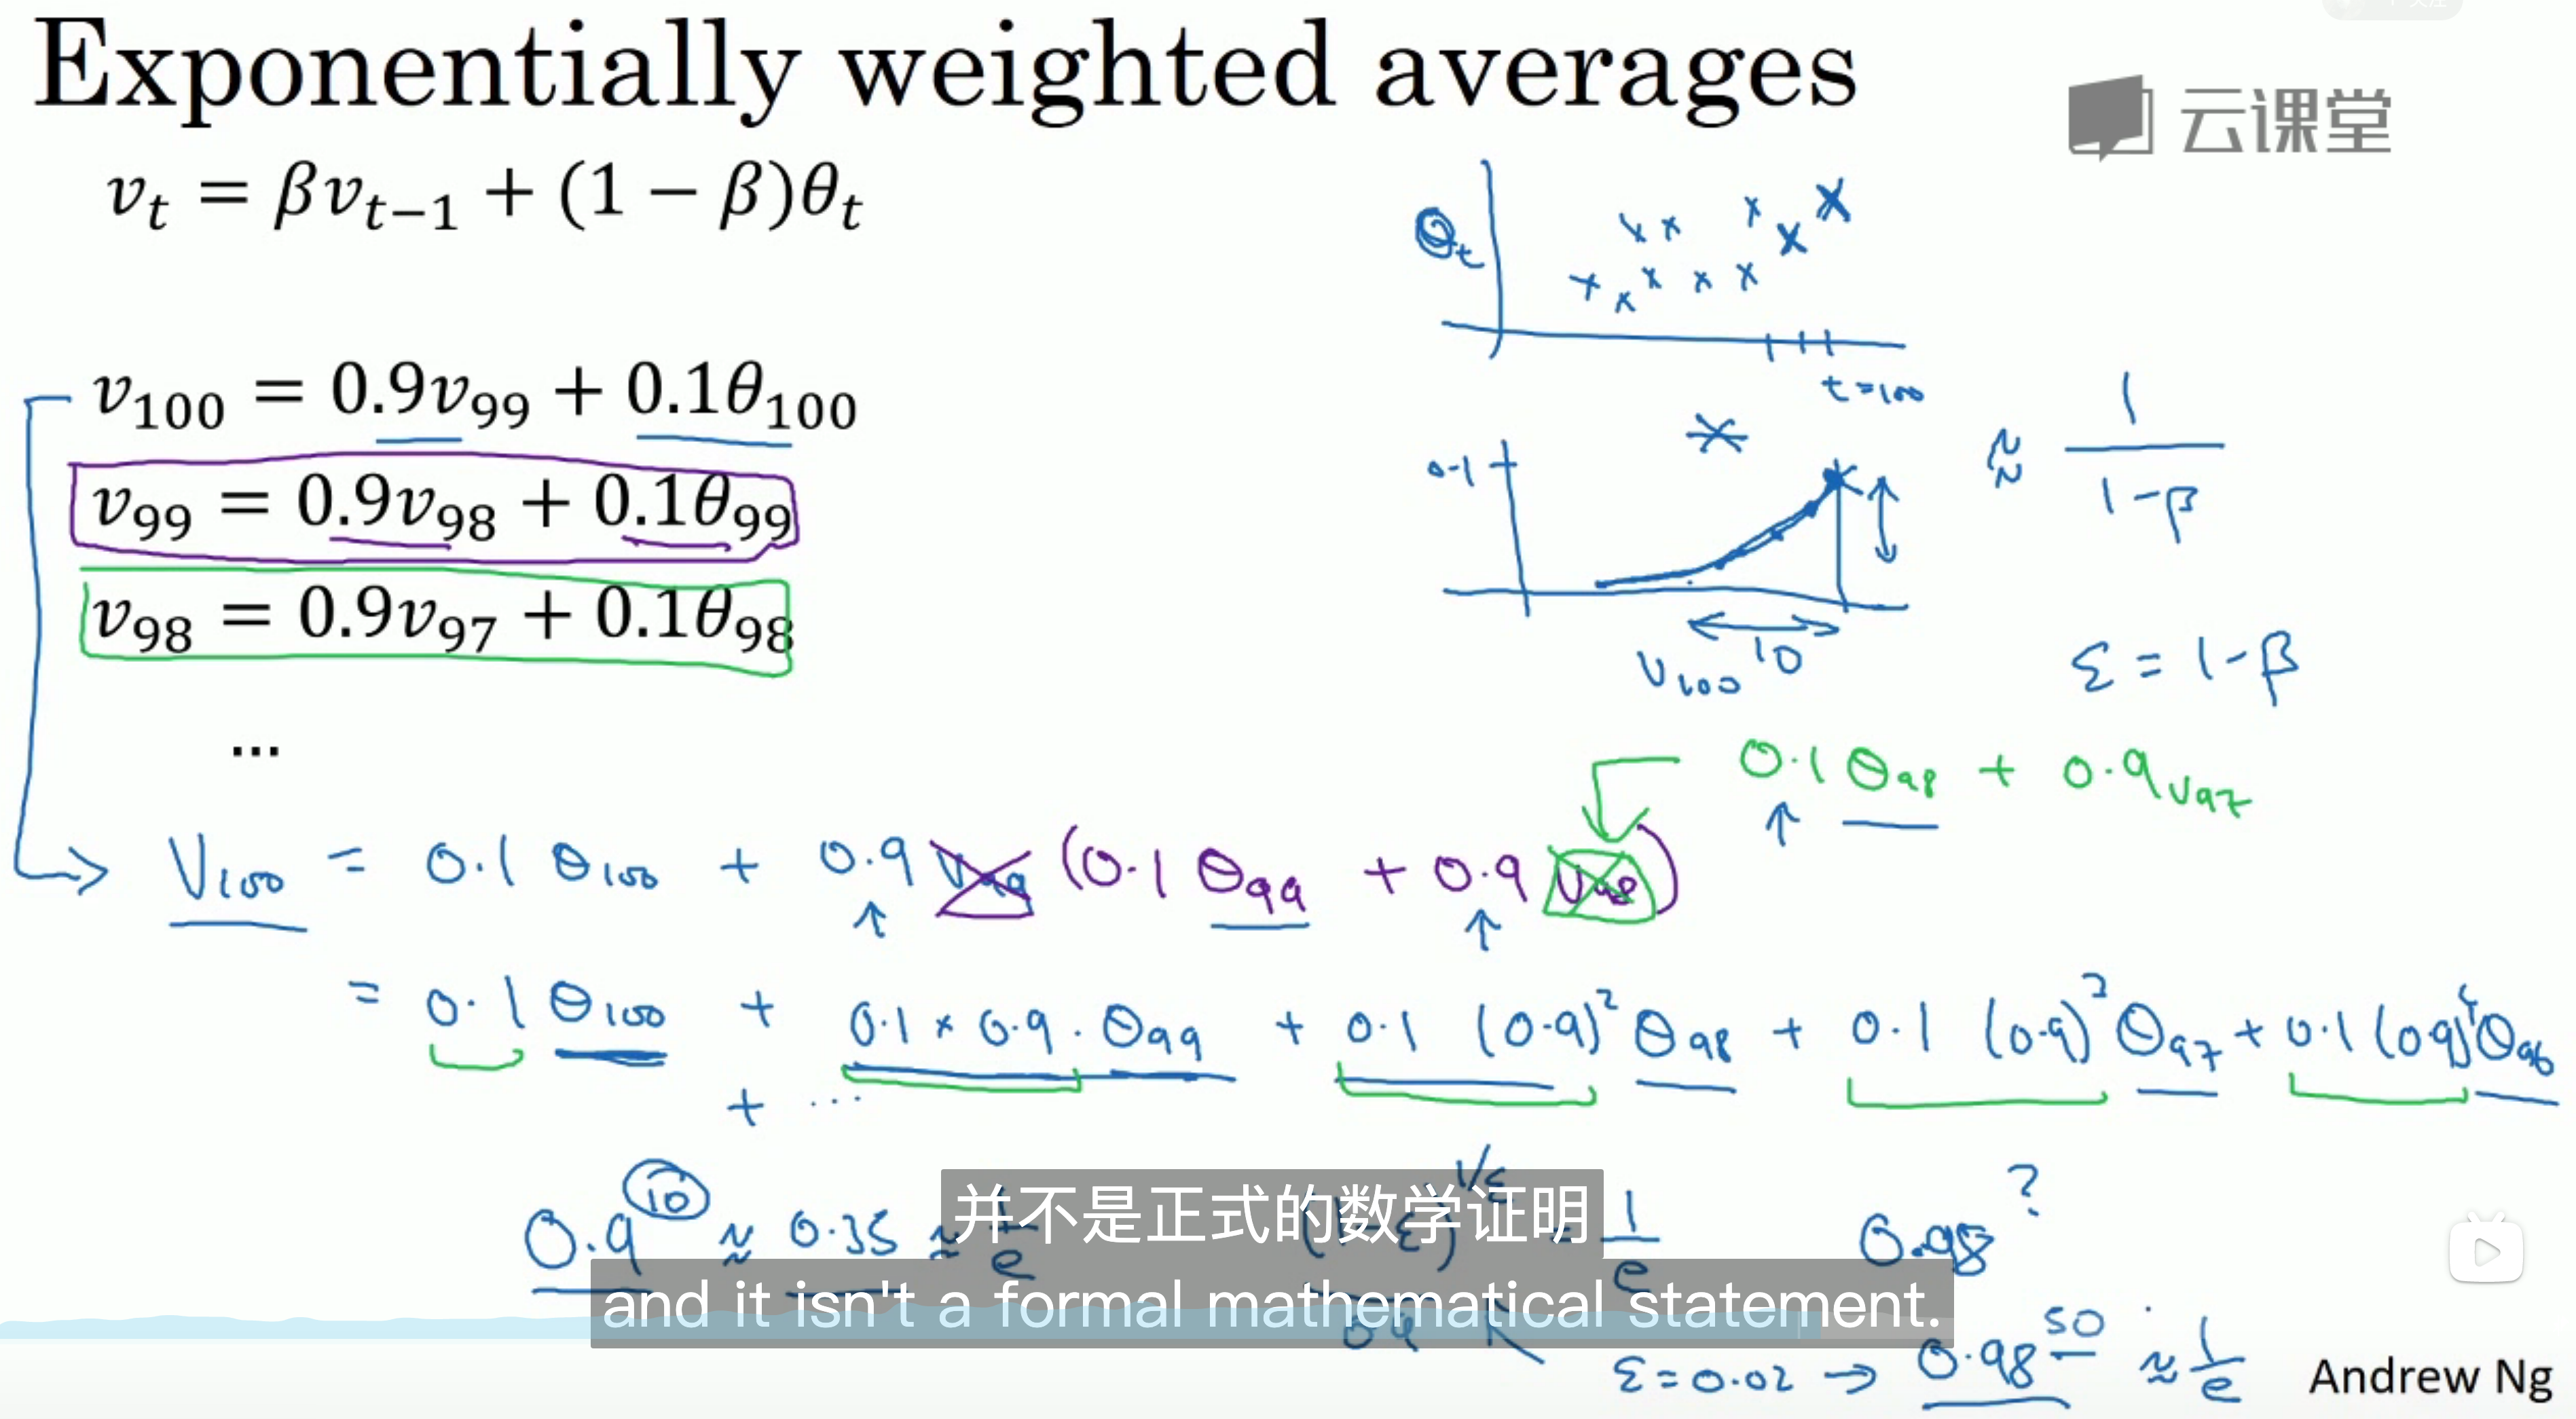 Exponentially weighted averages
云课堂
v_t = βv_{t−1} + (1 − β)θ_t
θ_t
t=100
v_100 = 0.9v_99 + 0.1θ_100
v_99 = 0.9v_98 + 0.1θ_99
v_98 = 0.9v_97 + 0.1θ_98
...
0.1
10
V_100
≈ 1/(1-β)
ε = 1-β
0.1 θ_98 + 0.9 V_97
V_100 = 0.1 θ_100 + 0.9 V_99 (0.1 θ_99 + 0.9 V_98)
= 0.1 θ_100 + 0.1 × 0.9 · θ_99 + 0.1 (0.9)² θ_98 + 0.1 (0.9)³ θ_97 + 0.1 (0.9)⁴ θ_96
+ ...
0.9^10 ≈ 0.35 ≈ 1/e
1/ε
1/e
0.98^?
并不是正式的数学证明
and it isn't a formal mathematical statement.
ε = 0.02 → 0.98^50 ≈ 1/e
Andrew Ng